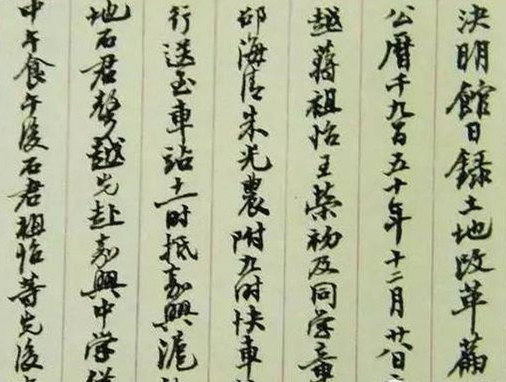 決明館日録土地改革篇
公曆千九百五十年十二月廿八日
越蔣祖怡王榮初及同學章
邰海清朱光農附九时快車
行送至車站十一时抵嘉興滬
地石君磐越先赴嘉興中學
中午食午後石君祖怡等先後